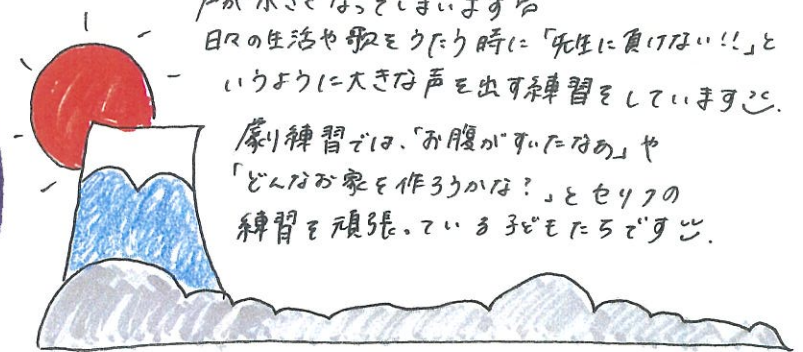 声が小さくなってしまいます
日々の生活や歌をうたう時に「先生に負けない!!」と
いうように大きな声を出す練習をしています
劇練習では、「お腹がすいたなぁ」や
「どんなお家を作ろうかな?」とセリフの
練習を頑張っている子どもたちです